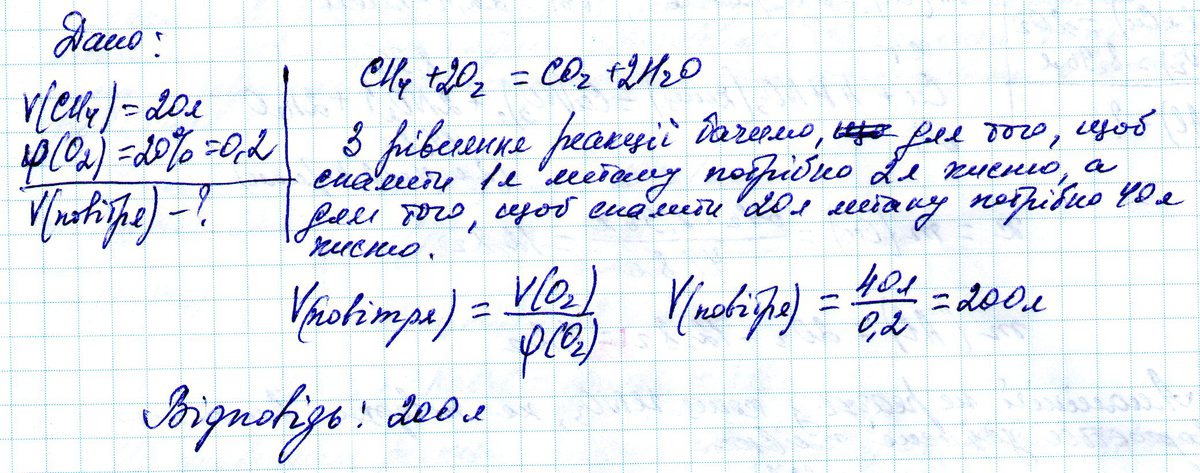 Дано:
V(CH₄) = 20л
φ(O₂) = 20% = 0,2
V(повітря) – ?
CH₄ + 2O₂ = CO₂ + 2H₂O
З рівняння реакції бачимо, що для того, щоб
спалити 1л метану потрібно 2л кисню, а
для того, щоб спалити 20л метану потрібно 40л
кисню.
V(повітря) = V(O₂) / φ(O₂) V(повітря) = 40л / 0,2 = 200л
Відповідь: 200л